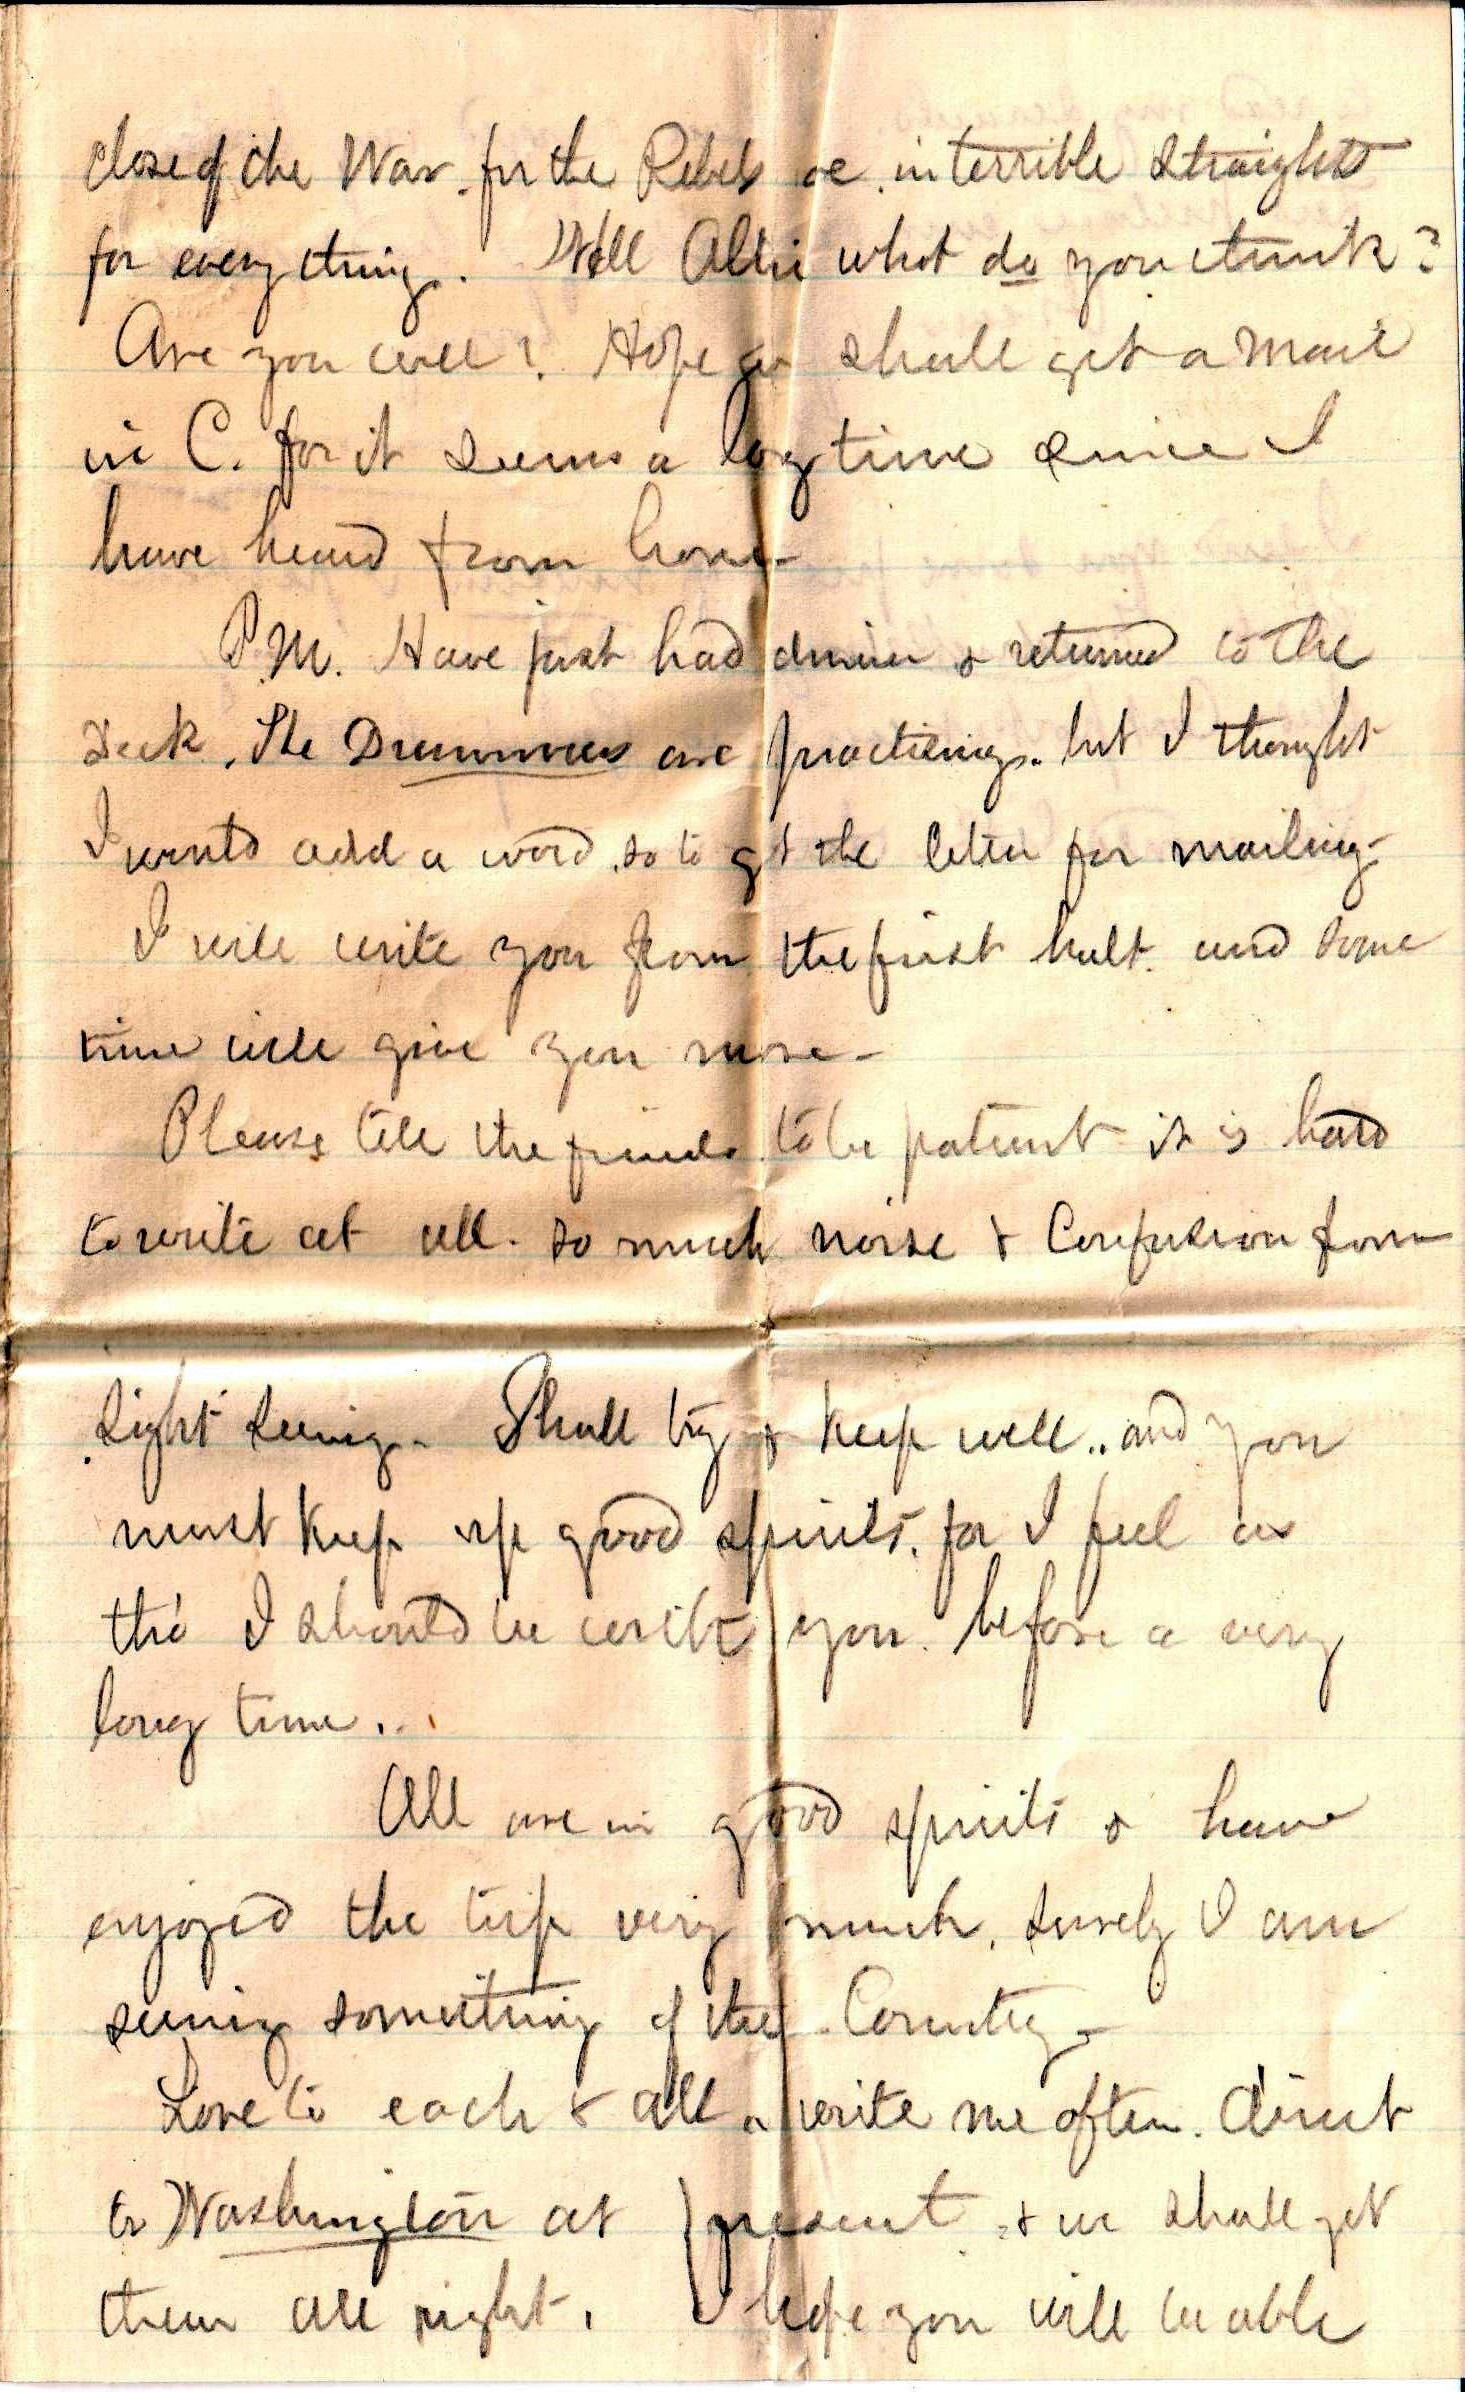 close of the War. for the Rebels are in terrible straights
for every thing. Well Allie what do you think?
Are you well? Hope we shall get a mail
in C. for it seems a long time since I
have heard from home-
P.M. Have just had dinner & returned to the
deck. The Drummers are practicing. but I thought
I would add a word so to get the letter for mailing-
I will write you from the first halt. and some
time will give you more-
Please tell the friends to be patient it is hard
to write at all. so much noise & Confusion from
sight seeing- Shall try & keep well.. and you
must keep up good spirits. for I feel as
tho' I should be with you. before a very
long time..
All are in good spirits & have
enjoyed the trip very much. Surely I am
seeing something of the Country-
Love to each & all & write me often. direct
to Washington at present & we shall get
them all right. I hope you will be able